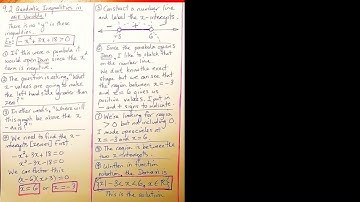 9.2 Quadratic Inequalities in
One Variable
There is no "y" in these
inequalities.
Ex: -x² + 3x + 18 > 0
① If this were a parabola it
would open Down since the x²
term is negative.
② The question is asking, "What
x-values are going to make
the left hand side greater than
zero?"
③ In other words, "where will
this graph be above the x
-axis?"
④ We need to find the x-
intercepts (zeros) first.
-x² + 3x + 18 = 0
x² - 3x - 18 = 0
We can factor this
(x-6)(x+3) = 0
x = 6 or x = -3
⑤ Construct a number line
and label the x-intercepts.
- + -
-3 6
⑥ Since the parabola opens
Down, I like to sketch that
on the number line.
We don't know the exact
shape but we can see that
the region between x = -3
and x = 6 gives us
positive values. I put
- and + signs to indicate
⑦ We're looking for region
> 0 but not including 0
I made open circles at
x = -3 and x = 6.
⑧ The region is between the
two x-intercepts.
⑨ Written in function
notation, the Domain is
{x | -3 < x < 6, x ∈ R}
This is the solution